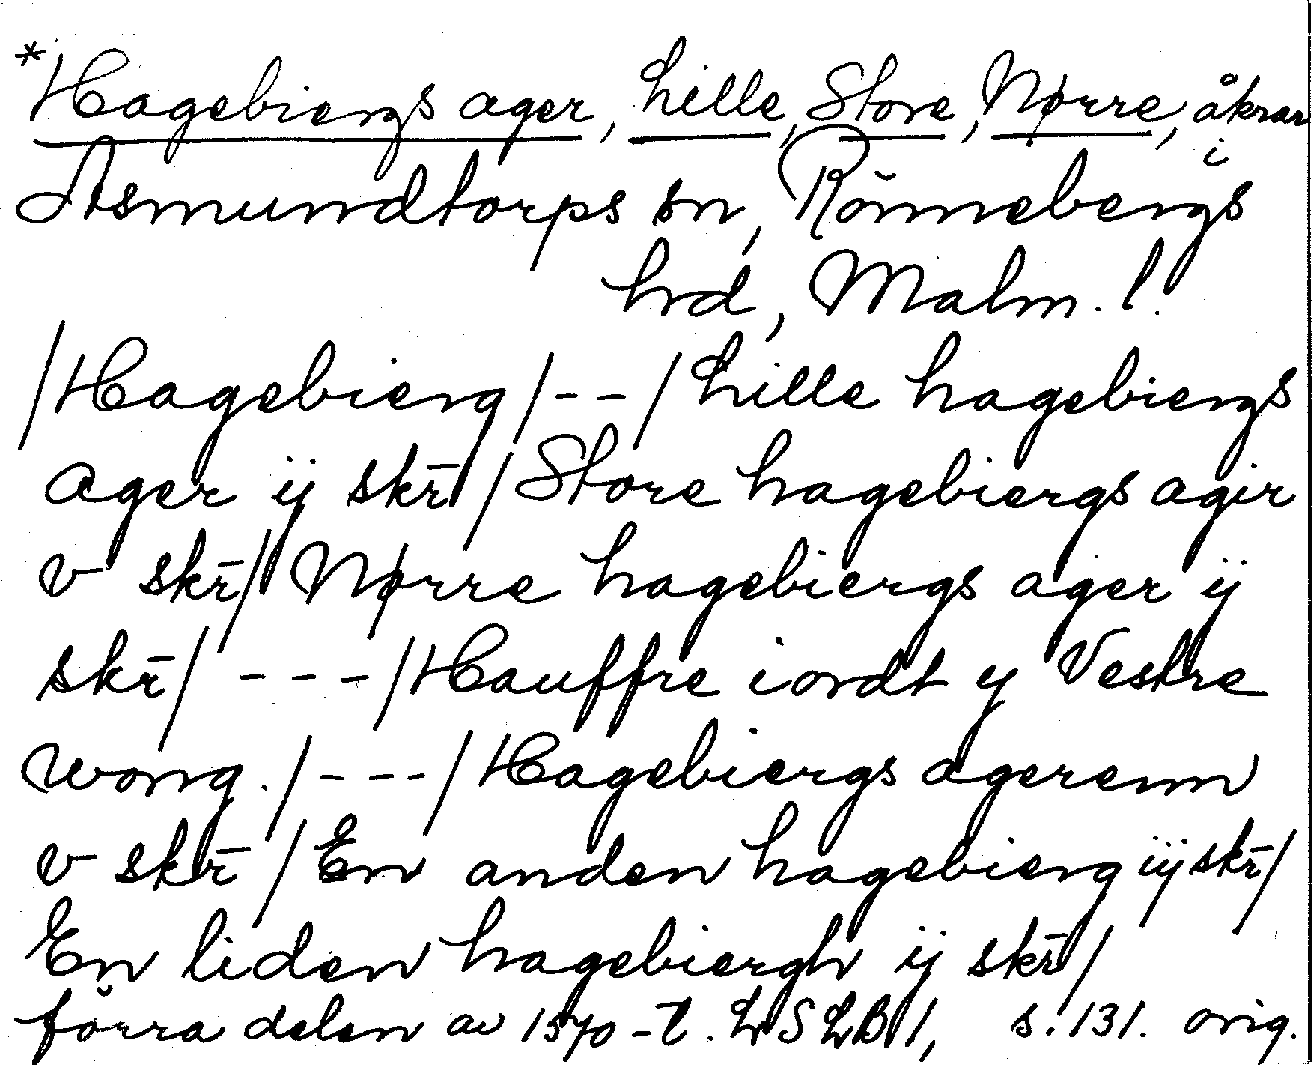 *Hagebiergs ager, Lille, Store, Nørre, åkrar i
Asmundtorps sn, Rönnebergs
hrd, Malm. l.
/Hagebierg/--/Lille hagebiergs
ager ij skr̄/Store hagebiergs agir
v skr̄/Nørre hagebiergs ager ij
skr̄/---/Hauffre iordt y Vestre
wong./---/Hagebiergs agerenn
v skr̄/En anden hagebierg iij skr̄/
En liden hagebiergh ij skr̄/
förra delen av 1570-t. LSLB 1, s. 131. orig.